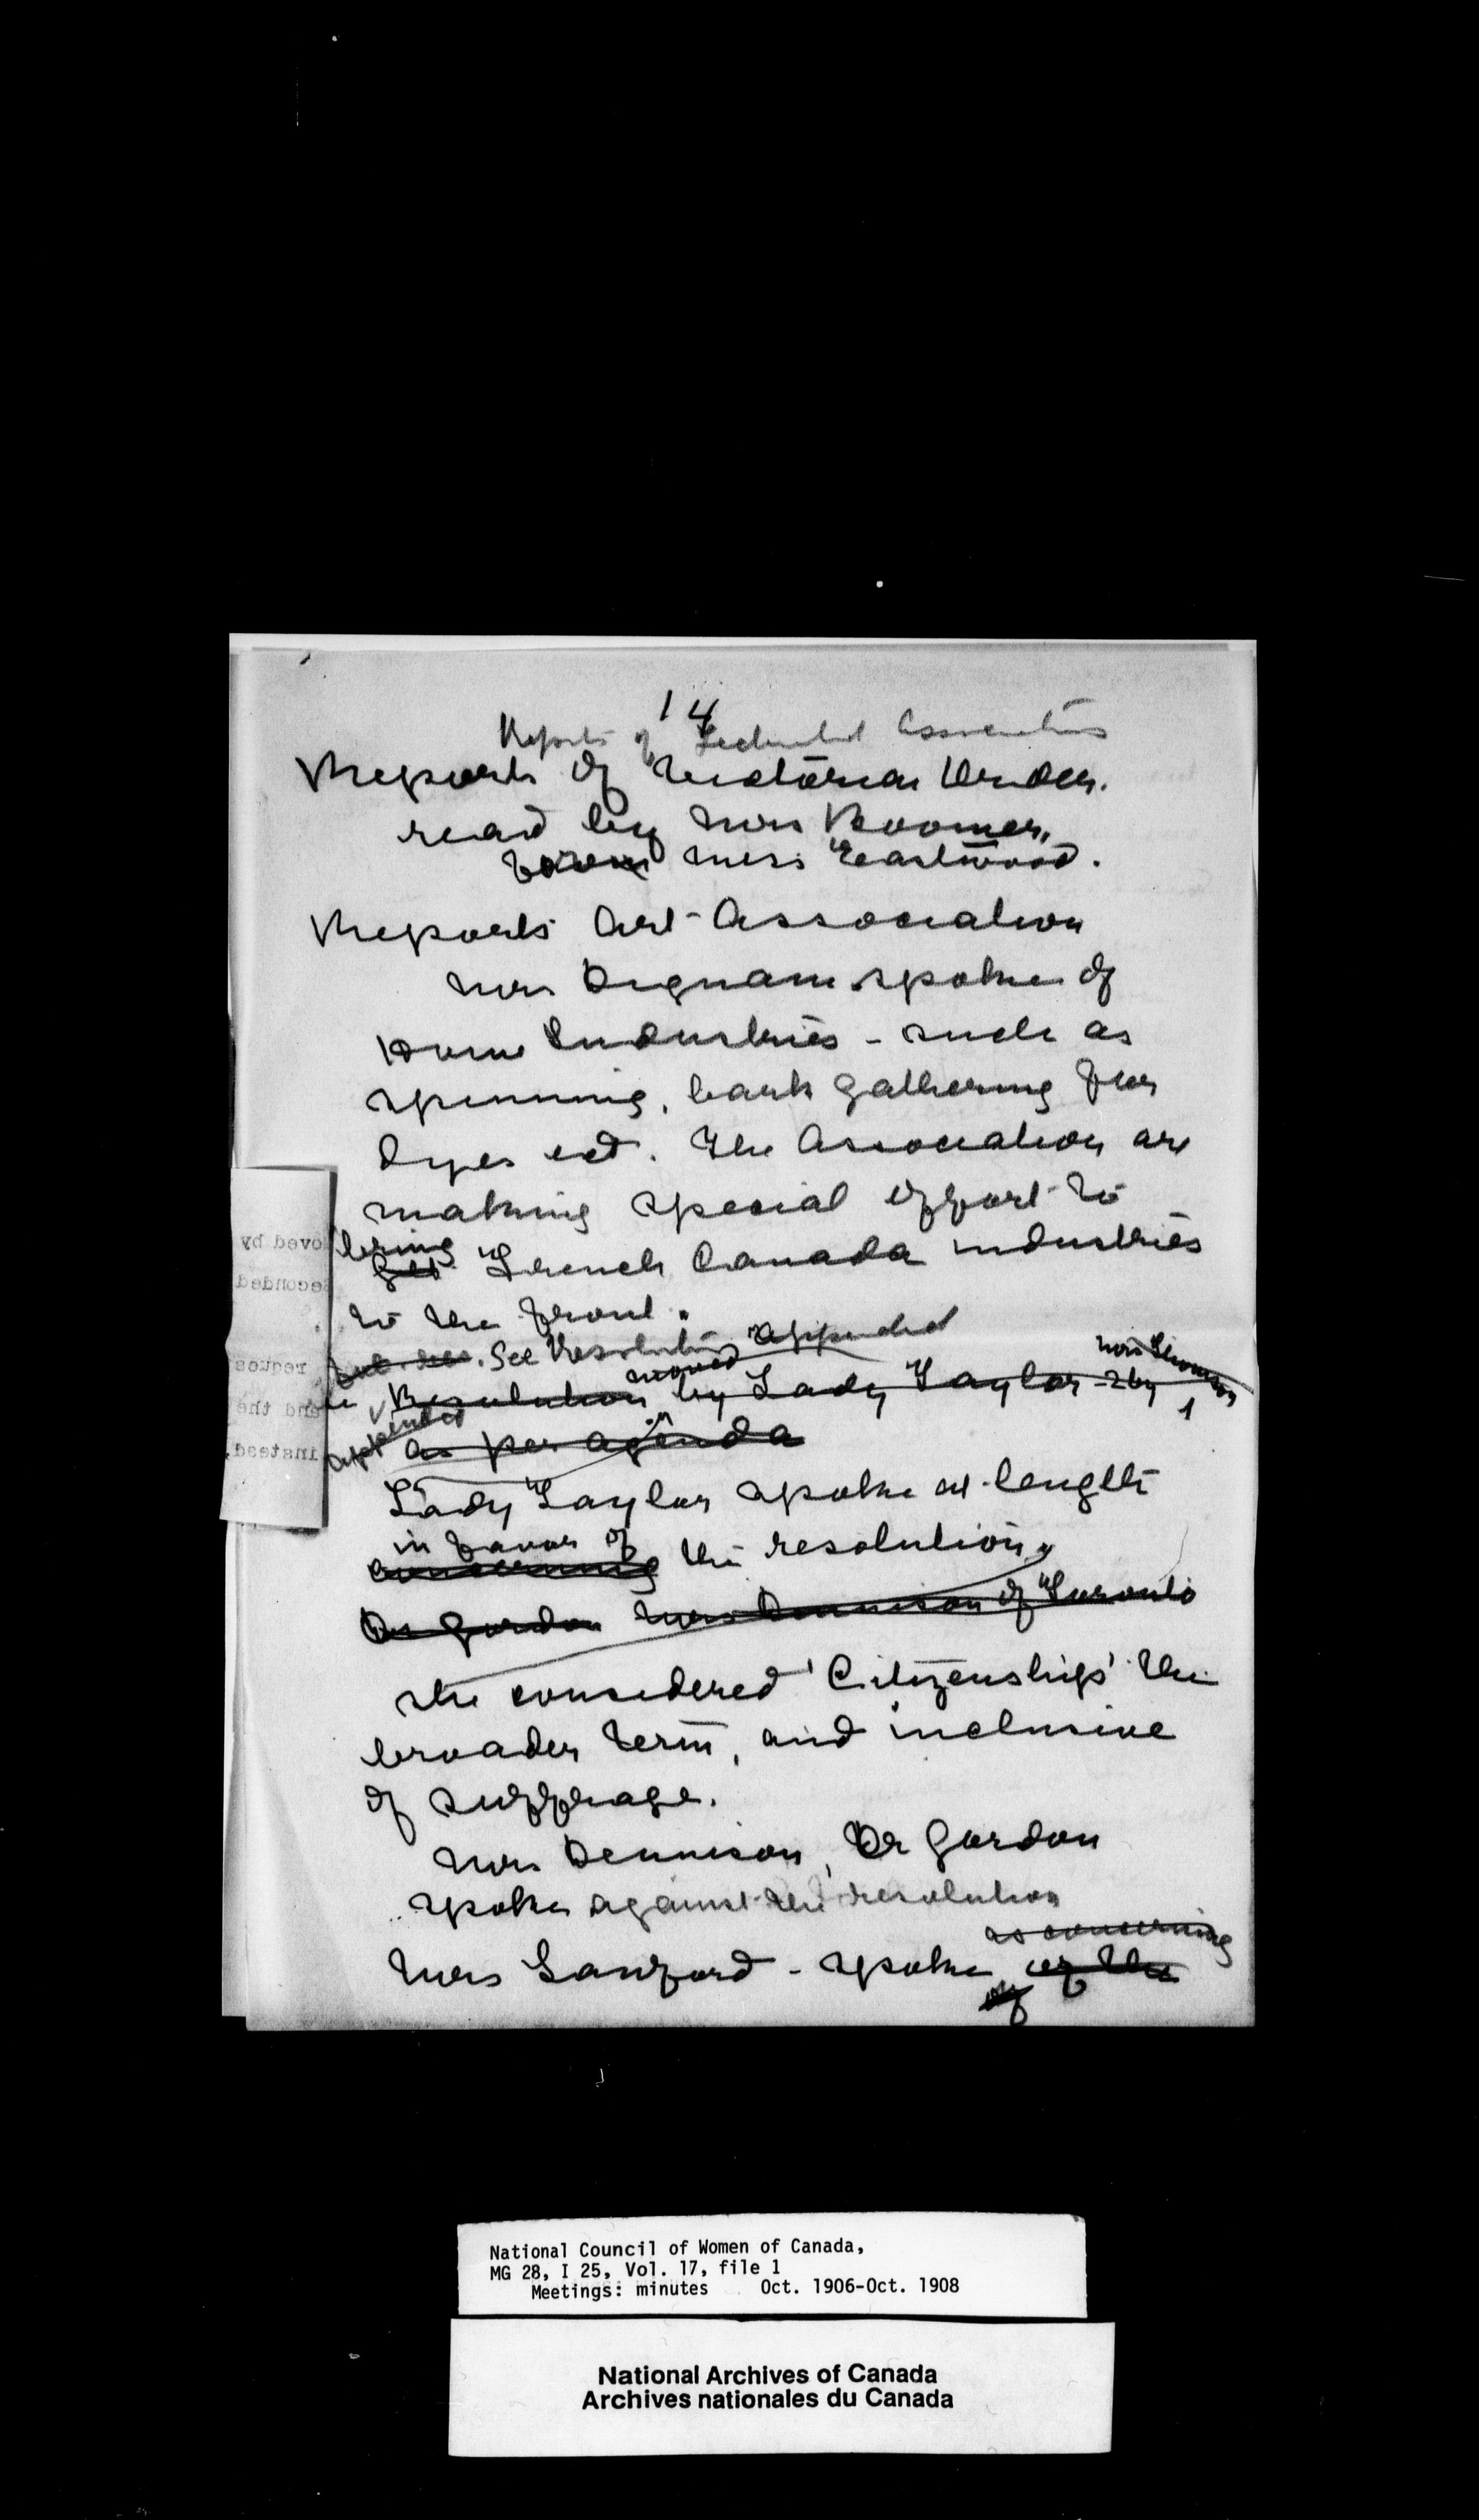 14
Reports of Federated Associations
Reports of Victorian Order.
read by Mrs Boomer,
from Miss Eastwood.
Reports Art Association
Mrs Dignam spoke of
Home Industries - such as
spinning, bark gathering for
dyes ect. The Association are
making special effort to
bring
get French Canada industries
to the front.
See Resolution appended
moved
Mrs Thomson
Resolution by Lady Taylor - 2 by
appended
as per agenda
Lady Taylor spoke at length
in favor of
concerning the resolution,
Dr Gordon Mrs Dennison of Toronto
she considered 'Citizenship' the
broader term, and inclusive
of suffrage.
Mrs Dennison, Dr Gordon
spoke against the resolution
as concerning
Mrs Sanford - spoke of the
of
oved by
econded
reques
and the
instead
National Council of Women of Canada,
MG 28, I 25, Vol. 17, file 1
Meetings: minutes Oct. 1906-Oct. 1908
National Archives of Canada
Archives nationales du Canada